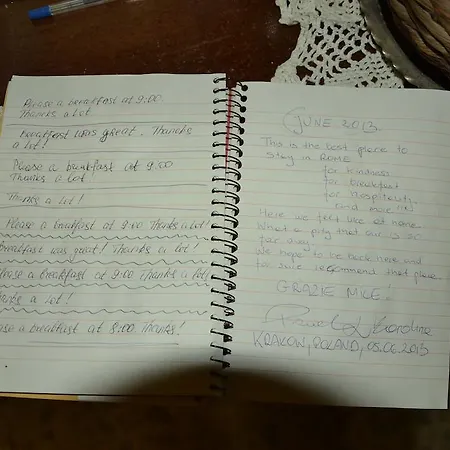 Please a breakfast at 9:00.
Thanks a lot
breakfast was great. Thanks
a lot!
Please a breakfast at 9.00
Thanks a lot
Thanks a lot!
Please a breakfast at 9:00 Thanks a lot!
Breakfast was great! Thanks a lot!
Please a breakfast at 9:00 Thanks a lot!
Thanks a lot!
ase a breakfast at 8:00 Thanks!
JUNE 2013
This is the best place to
stay in ROME
for kindness
for breakfast
for hospitality
and more
Here we felt like at home
What a pity that our is so
far away.
We hope to be back here and
for sure recommend that place
GRAZIE MILE!
Karolina
KRAKOW, POLAND, 05.06.2013